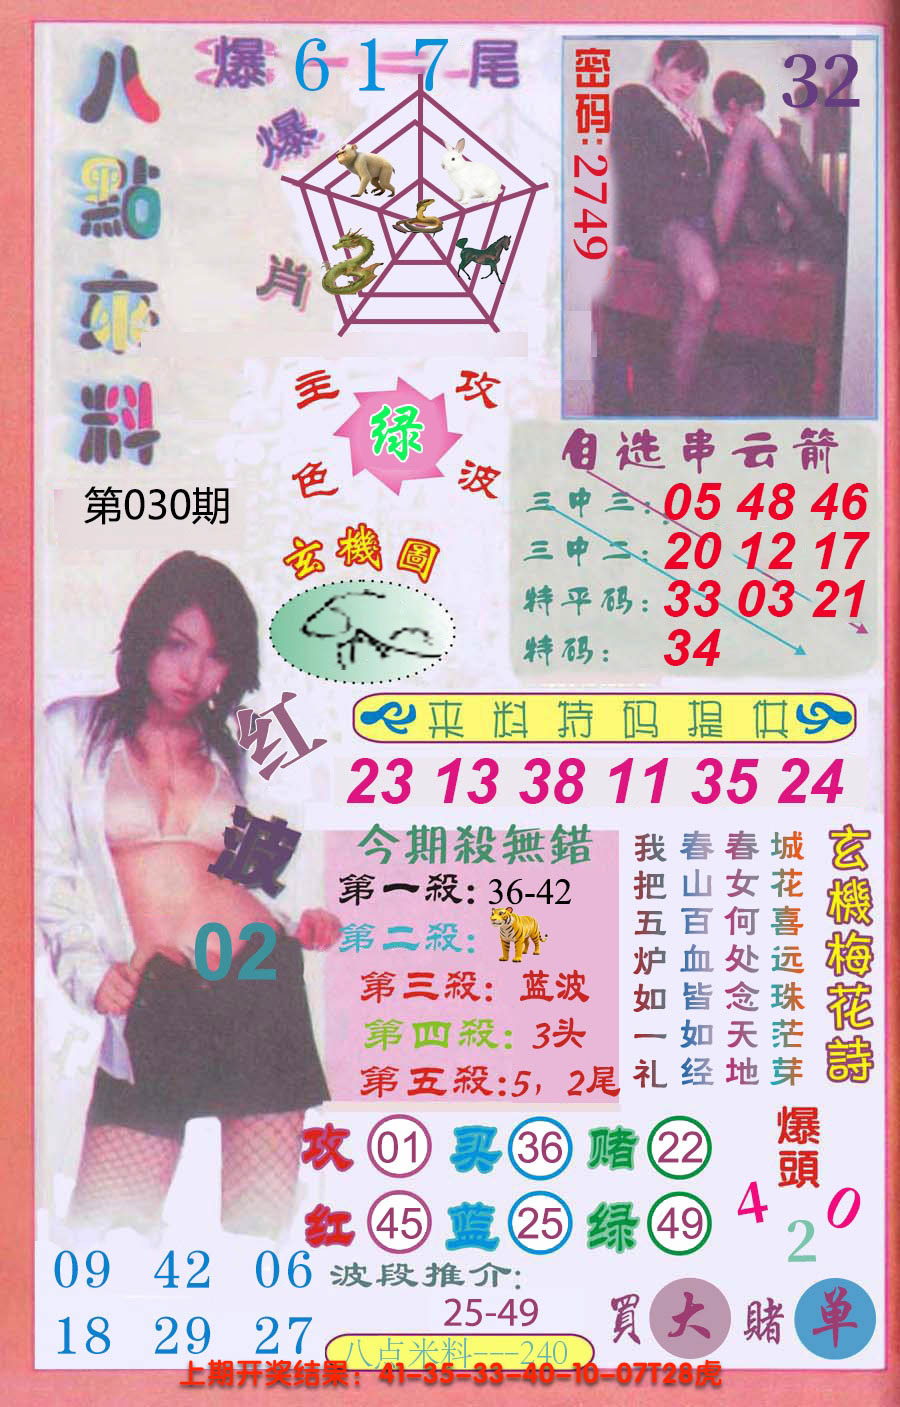 八點來料
爆 617 尾
爆肖
密码:2749
32
主攻
绿
色波
第030期
玄機圖
自选串云箭
三中三: 05 48 46
三中二: 20 12 17
特平码: 33 03 21
特码: 34
红波
02
来料特码提供
23 13 38 11 35 24
今期殺無錯
第一殺: 36-42
第二殺:
第三殺: 蓝波
第四殺: 3头
第五殺:5，2尾
玄機梅花詩
城花喜远珠茫芽
春女何处念天地
春山百血皆如经
我把五炉如一礼
攻 01 买 36 赌 22
红 45 蓝 25 绿 49
爆頭
4 2 0
09 42 06
18 29 27
波段推介:
25-49
買 大 賭 单
八点米料---240
上期开奖结果：41-35-33-40-10-07T28虎